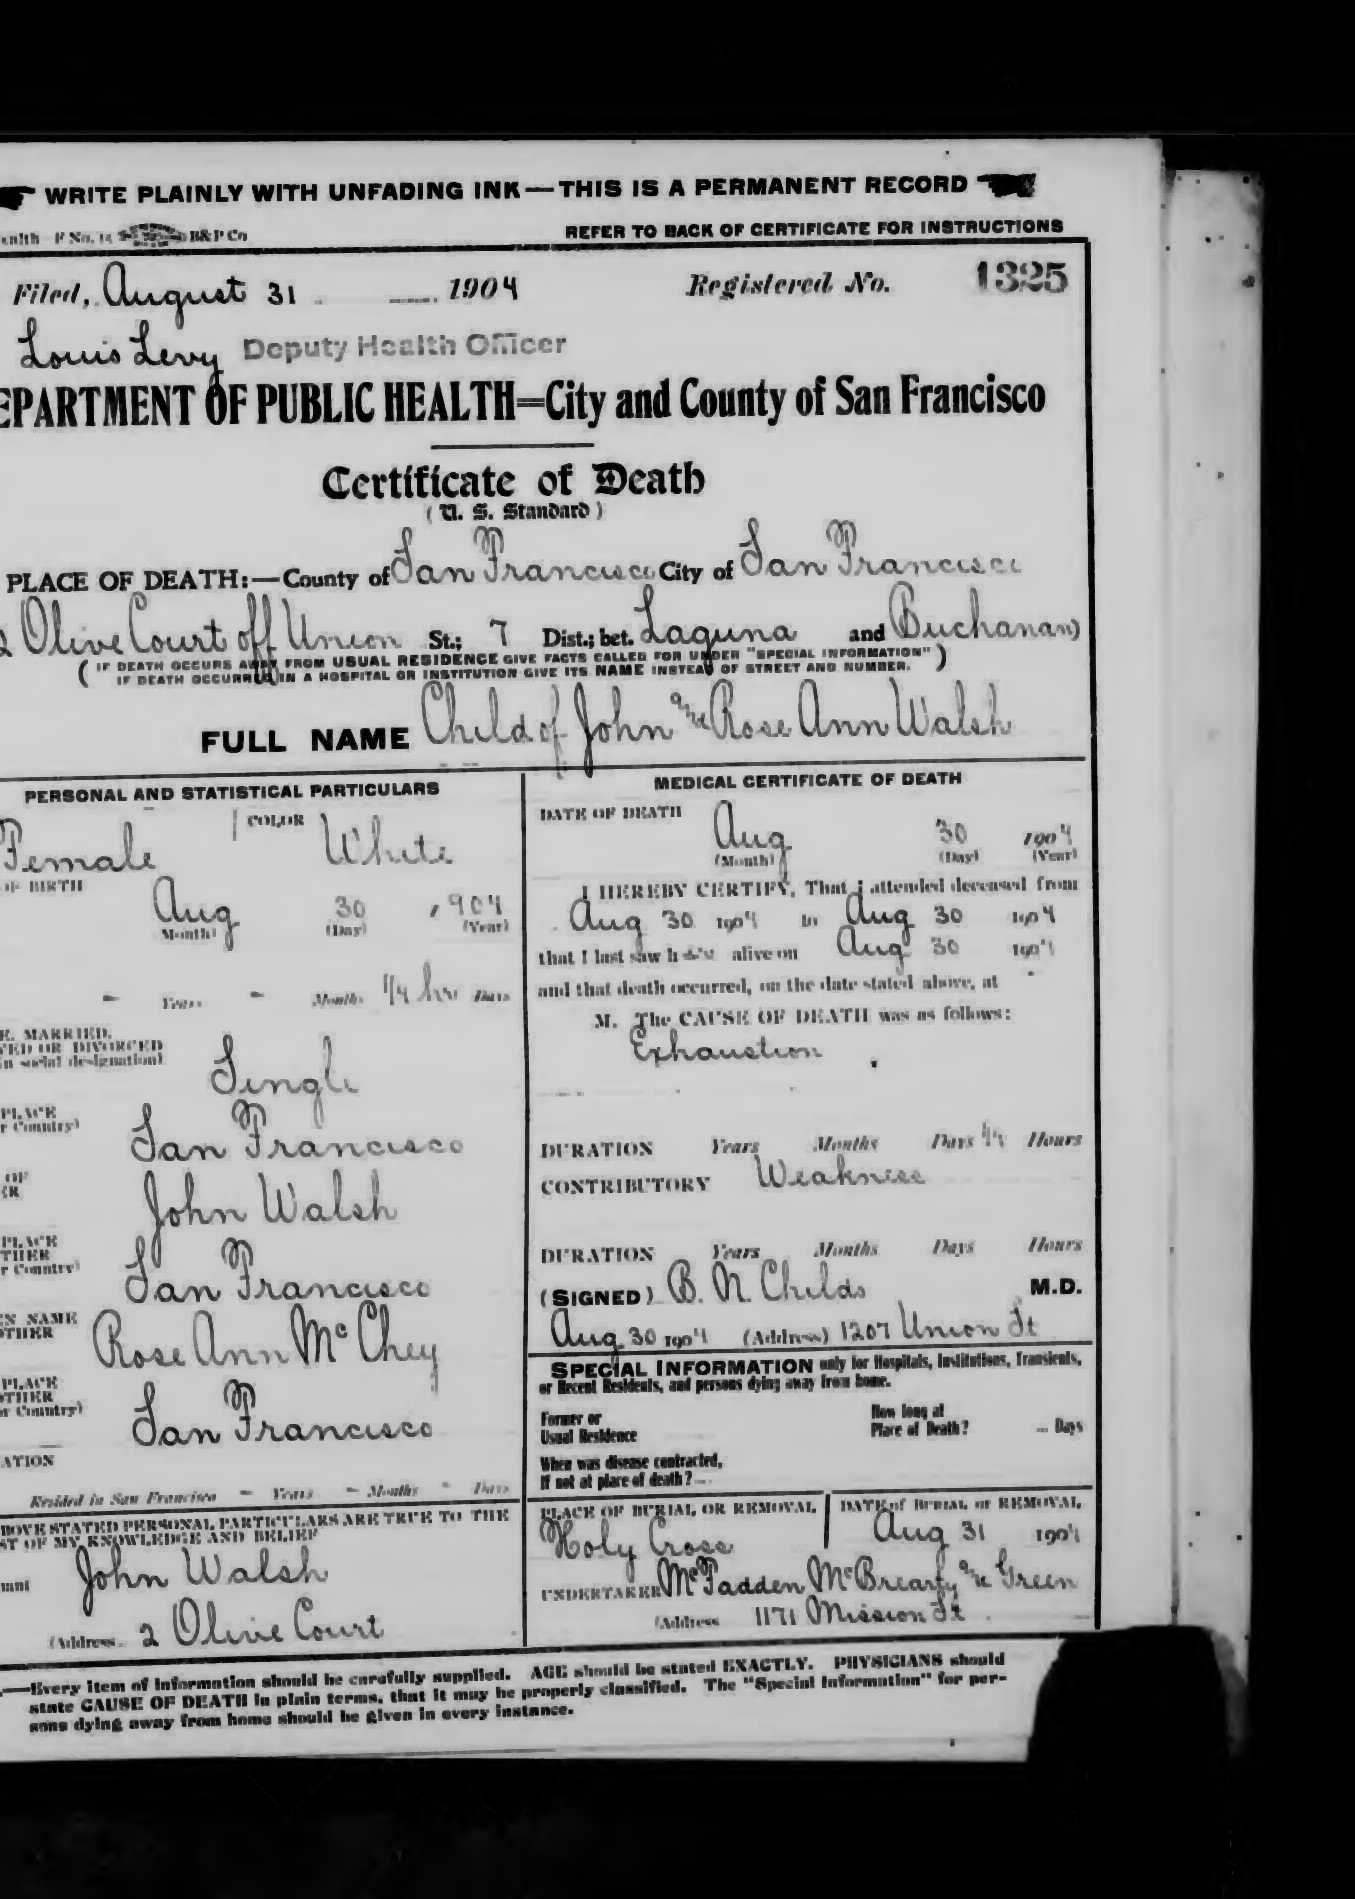 WRITE PLAINLY WITH UNFADING INK—THIS IS A PERMANENT RECORD
ealth—F No. 14 B&P Co
REFER TO BACK OF CERTIFICATE FOR INSTRUCTIONS
Filed, August 31 1904 Registered No. 1325
Louis Levy Deputy Health Officer
EPARTMENT OF PUBLIC HEALTH=City and County of San Francisco
Certificate of Death
(U. S. Standard)
PLACE OF DEATH:—County of San Francisco City of San Francisco
2 Olive Court off Union St.; 7 Dist.; bet. Laguna and Buchanan)
(IF DEATH OCCURS AWAY FROM USUAL RESIDENCE GIVE FACTS CALLED FOR UNDER "SPECIAL INFORMATION"
IF DEATH OCCURRED IN A HOSPITAL OR INSTITUTION GIVE ITS NAME INSTEAD OF STREET AND NUMBER.)
FULL NAME Child of John and Rose Ann Walsh
PERSONAL AND STATISTICAL PARTICULARS
Female COLOR White
OF BIRTH
Aug 30 1904
(Month) (Day) (Year)
- Years - Months 1/4 hr Days
E, MARRIED,
ED OR DIVORCED
in social designation)
Single
PLACE
r Country)
San Francisco
OF
ER
John Walsh
PLACE
THER
r Country)
San Francisco
EN NAME
OTHER
Rose Ann McChey
PLACE
OTHER
or Country)
San Francisco
ATION
Resided in San Francisco - Years - Months - Days
BOVE STATED PERSONAL PARTICULARS ARE TRUE TO THE
ST OF MY KNOWLEDGE AND BELIEF
mant John Walsh
(Address 2 Olive Court
MEDICAL CERTIFICATE OF DEATH
DATE OF DEATH
Aug 30 1904
(Month) (Day) (Year)
I HEREBY CERTIFY, That I attended deceased from
Aug 30 1904 to Aug 30 1904
that I last saw h alive on Aug 30 1904
and that death occurred, on the date stated above, at
M. The CAUSE OF DEATH was as follows:
Exhaustion
DURATION Years Months Days 1/4 Hours
CONTRIBUTORY Weakness
DURATION Years Months Days Hours
(SIGNED) B. N. Childs M.D.
Aug 30 1904 (Address) 1207 Union St
SPECIAL INFORMATION only for Hospitals, Institutions, Transients,
or Recent Residents, and persons dying away from home.
Former or
Usual Residence
How long at
Place of Death? ... Days
When was disease contracted,
If not at place of death?
PLACE OF BURIAL OR REMOVAL
Holy Cross
DATE of BURIAL or REMOVAL
Aug 31 1904
UNDERTAKER McFadden McBrearty and Green
(Address 1171 Mission St
.—Every item of information should be carefully supplied. AGE should be stated EXACTLY. PHYSICIANS should
state CAUSE OF DEATH in plain terms, that it may be properly classified. The "Special Information" for per-
sons dying away from home should be given in every instance.